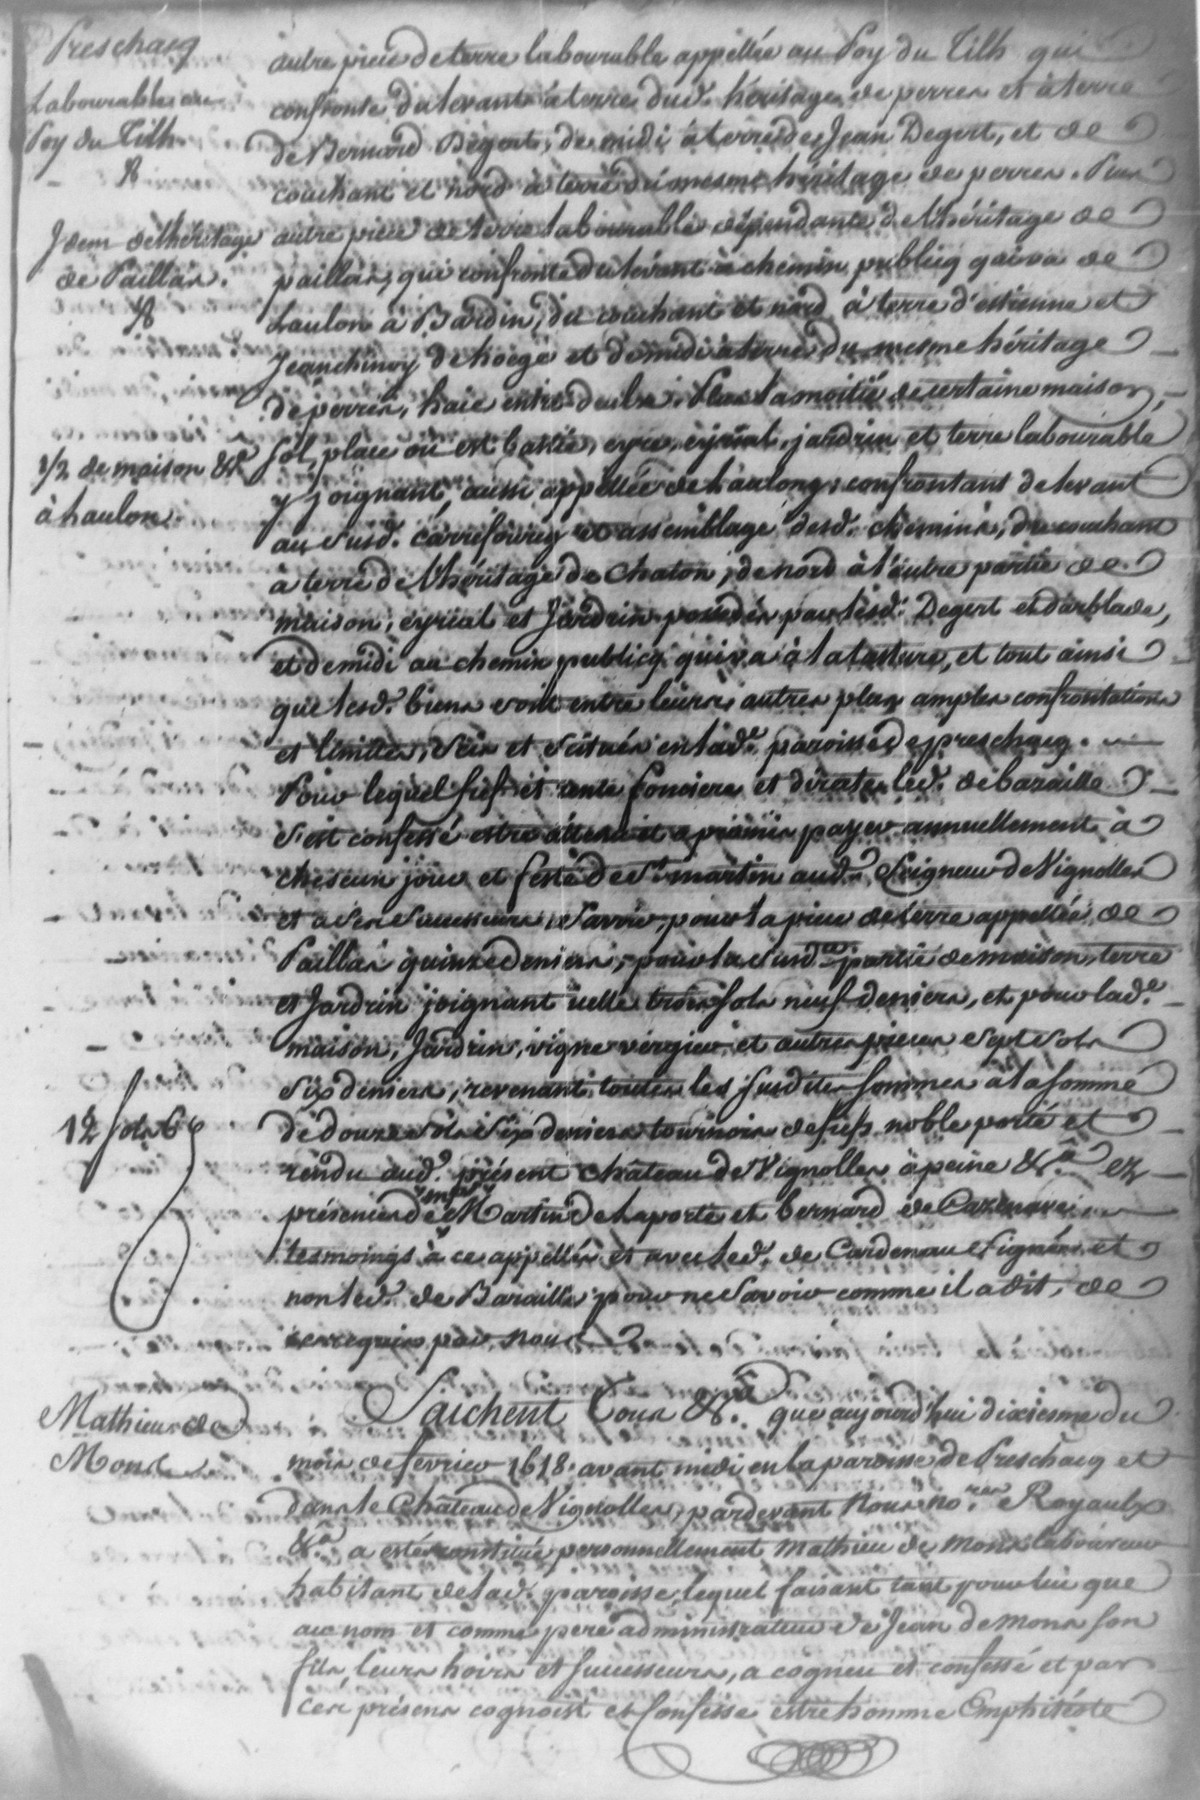 Preschacq
Labourable au
Poy du Tilh.
&
autre piece de terre labourable appellée au Poy du Tilh qui
confronte du levant à terre dud. héritage de perres et à terre
de Bernard Degert, de midi à terre de Jean Degert, et de
couchant et nord à terre du mesme héritage de perres. Plus
Idem de l'héritage
de Paillas.
&
autre piece de terre labourable dépendante de l'héritage de
paillas, qui confronte du levant à chemin publicq qui va de
Laulon à Bardin, du couchant et nord à terre d'estienne et
Jeanchinoy de hoegé et de midi à terre du mesme héritage
de perres, haie entre deulx. Plus la moitié de certaine maison,
1/2 de maison &ca
à haulon.
sol, place où est bastie, eyre, eyrial, jardin et terre labourable
y joignant, aussi appellée de haulong, confrontant de levant
au susd. carrefourcq et assemblage desd. chemins, du couchant
à terre de l'héritage de Chaton, de nord à l'autre partie de
maison, eyrial et Jardin possedés par lesd. Degert et darblade,
et de midi au chemin publicq qui va à la tasture, et tout ainsi
que lesd. biens sont entre leurs autres plus amples confrontations
et limites, sizes et scitués en lad. paroisse de preschacq.
Pour lequel fief et rente fonciere et directe led. de baraille
s'est confessé estre attenu et a promis payer annuellement à
chescun jour et feste de St. martin aud. Seigneur de Vignolles
et à ses successeurs, scavoir, pour la piece de terre appellée de
Paillas quinze deniers, pour la susd. partie de maison, terre
et Jardin joignant icelle trois sols neuf deniers, et pour lade.
maison, Jardin, vigne vergier et autres pieces sept sols
six deniers, revenant toutes les susdites sommes à la somme
12 sols 6 d
de douze sols six deniers tournois de fief noble porté et
rendu aud. présent château de Vignolles à peine &ca. ez
présences de mesr Martin de Laporte et bernard de Cazenave
tesmoings à ce appellés et avec led. de Cardenau signés et
non led. de Baraille pour ne scavoir comme il a dit, de
ce requis par nous.
Mathieu de
Mons.
Saichent Tous &ca. que aujourd'hui dixiesme du
mois de fevrier 1618 avant midi en la paroisse de Preschacq et
dans le Château de Vignolles, pardevant Nous nores Royaulx
&ca a esté constitué personnellement mathieu de mons laboureur
habitant de lad. paroisse, lequel faisant tant pour lui que
au nom et comme pere administrateur de Jean de mons son
fils, leurs hoirs et successeurs, a cogneu et confessé et par
ces présens cognoist et confesse estre homme Emphitéote